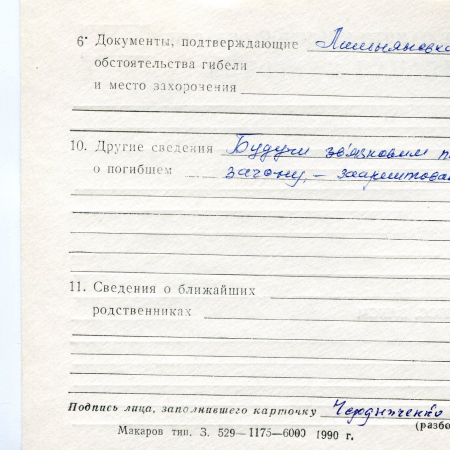 6· Документы, подтверждающие
обстоятельства гибели
и место захоронения
10. Другие сведения Будучи звʼязковим
о погибшем загону, – заарештова
11. Сведения о ближайших
родственниках
Подпись лица, заполнившего карточку
(разбо
Макаров тип. З. 529—1175—6000 1990 г.